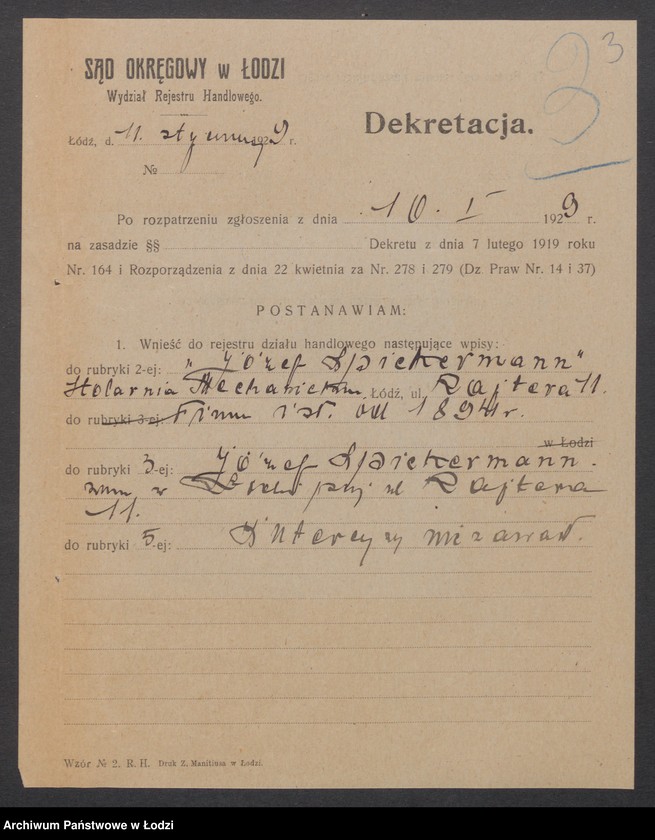 3
3
SĄD OKRĘGOWY w ŁODZI
Wydział Rejestru Handlowego.
Dekretacja.
Łódź, d. 11. stycznia 1929 r.
№
Po rozpatrzeniu zgłoszenia z dnia 10. I 1929 r.
na zasadzie §§ Dekretu z dnia 7 lutego 1919 roku
Nr. 164 i Rozporządzenia z dnia 22 kwietnia za Nr. 278 i 279 (Dz Praw Nr. 14 i 37)
POSTANAWIAM:
1. Wnieść do rejestru działu handlowego następujące wpisy:
do rubryki 2-ej: „Józef Spickermann"
Stolarnia Mechaniczna, Łódź, ul. Rajtera 11.
do rubryki 3-ej: Firma ist. od 1894 r.
w Łodzi
do rubryki 3-ej: Józef Spickermann.
zam. w Łodzi przy ul Rajtera
11.
do rubryki 5-ej: Intercyzy nie zawarł.
Wzór № 2. R. H. Druk Z. Manitiusa w Łodzi.
Archiwum Państwowe w Łodzi